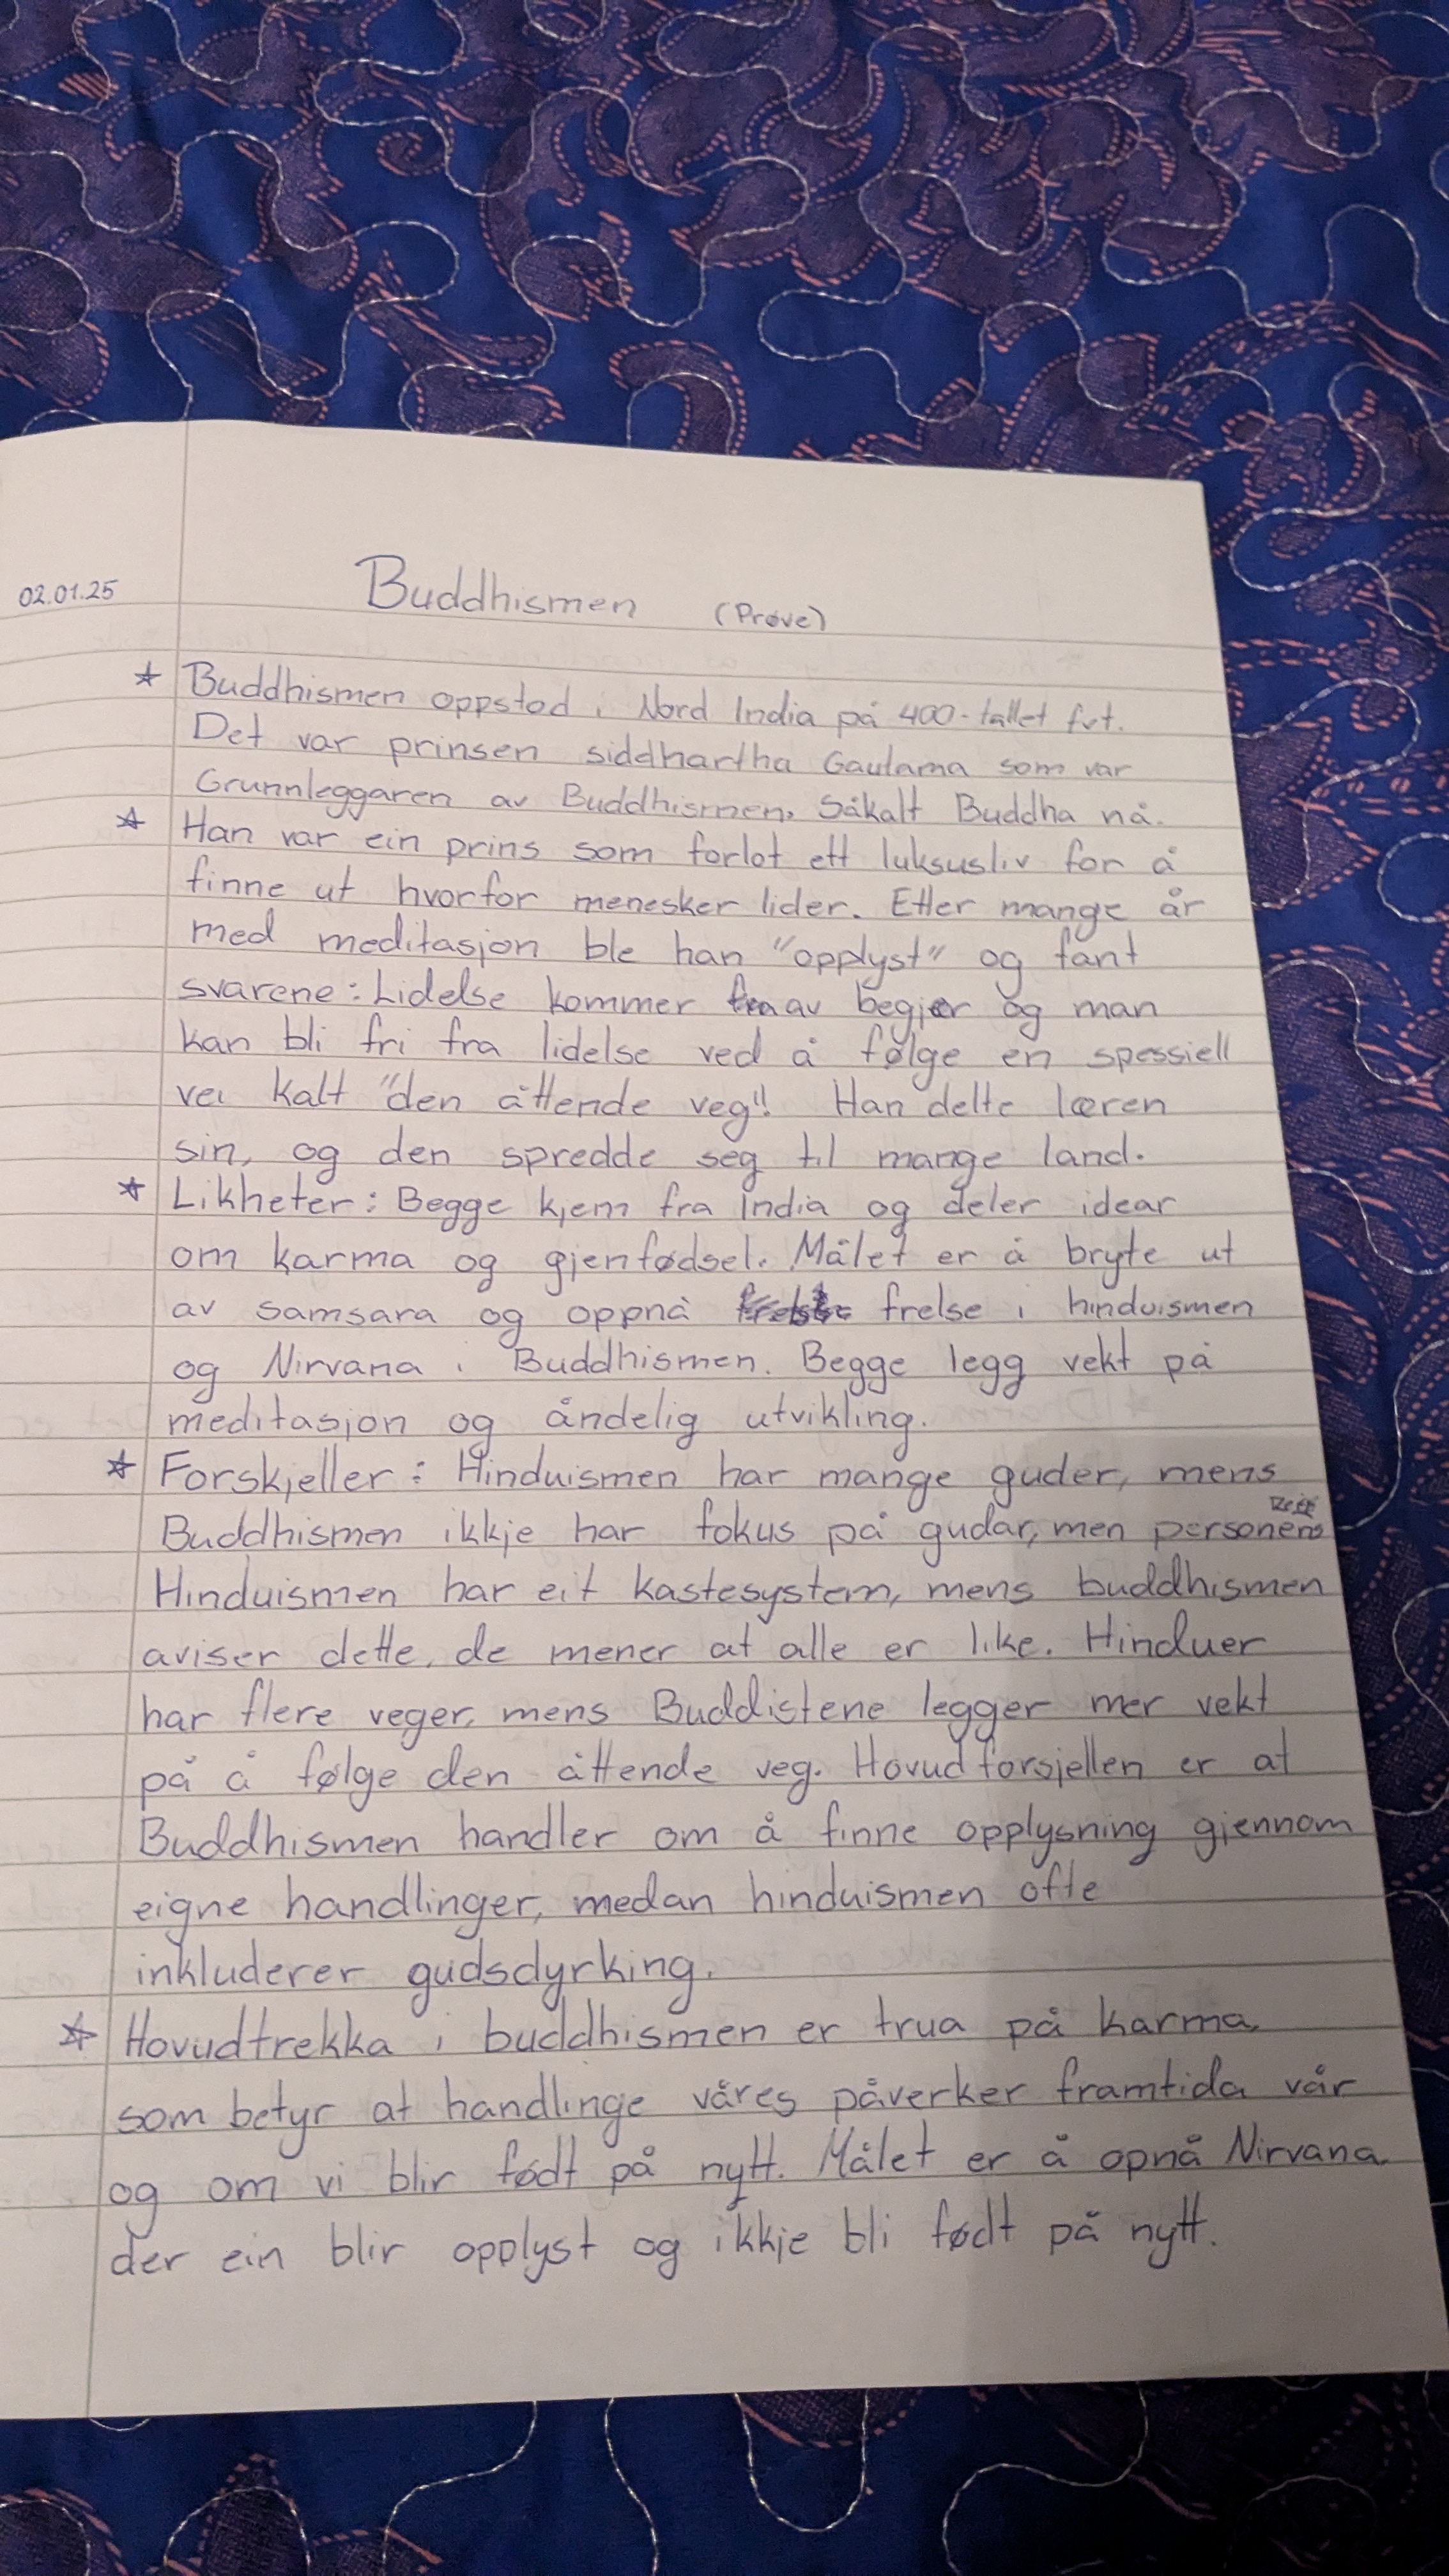 02.01.25 Buddhismen (Prøve)
* Buddhismen oppstod i Nord India på 400-tallet fvt.
Det var prinsen siddhartha Gautama som var
Grunnleggaren av Buddhismen. Såkalt Buddha nå.
* Han var ein prins som forlot ett luksusliv for å
finne ut hvorfor menesker lider. Etter mange år
med meditasjon ble han "opplyst" og fant
svarene: Lidelse kommer av begjær og man
kan bli fri fra lidelse ved å følge en spessiell
vei kalt "den åttende veg". Han delte læren
sin, og den spredde seg til mange land.
* Likheter: Begge kjem fra India og deler idear
om karma og gjenfødsel. Målet er å bryte ut
av samsara og oppnå frelse i hinduismen
og Nirvana i Buddhismen. Begge legg vekt på
meditasjon og åndelig utvikling.
* Forskjeller: Hinduismen har mange guder, mens
Buddhismen ikkje har fokus på gudar, men personens
Hinduismen har eit kastesystem, mens buddhismen
aviser dette, de mener at alle er like. Hinduer
har flere veger, mens Buddistene legger mer vekt
på å følge den åttende veg. Hovudforsjellen er at
Buddhismen handler om å finne opplysning gjennom
eigne handlinger, medan hinduismen ofte
inkluderer gudsdyrking.
* Hovudtrekka i buddhismen er trua på karma,
som betyr at handlinge våres påverker framtida vår
og om vi blir født på nytt. Målet er å opnå Nirvana.
der ein blir opplyst og ikkje bli født på nytt.